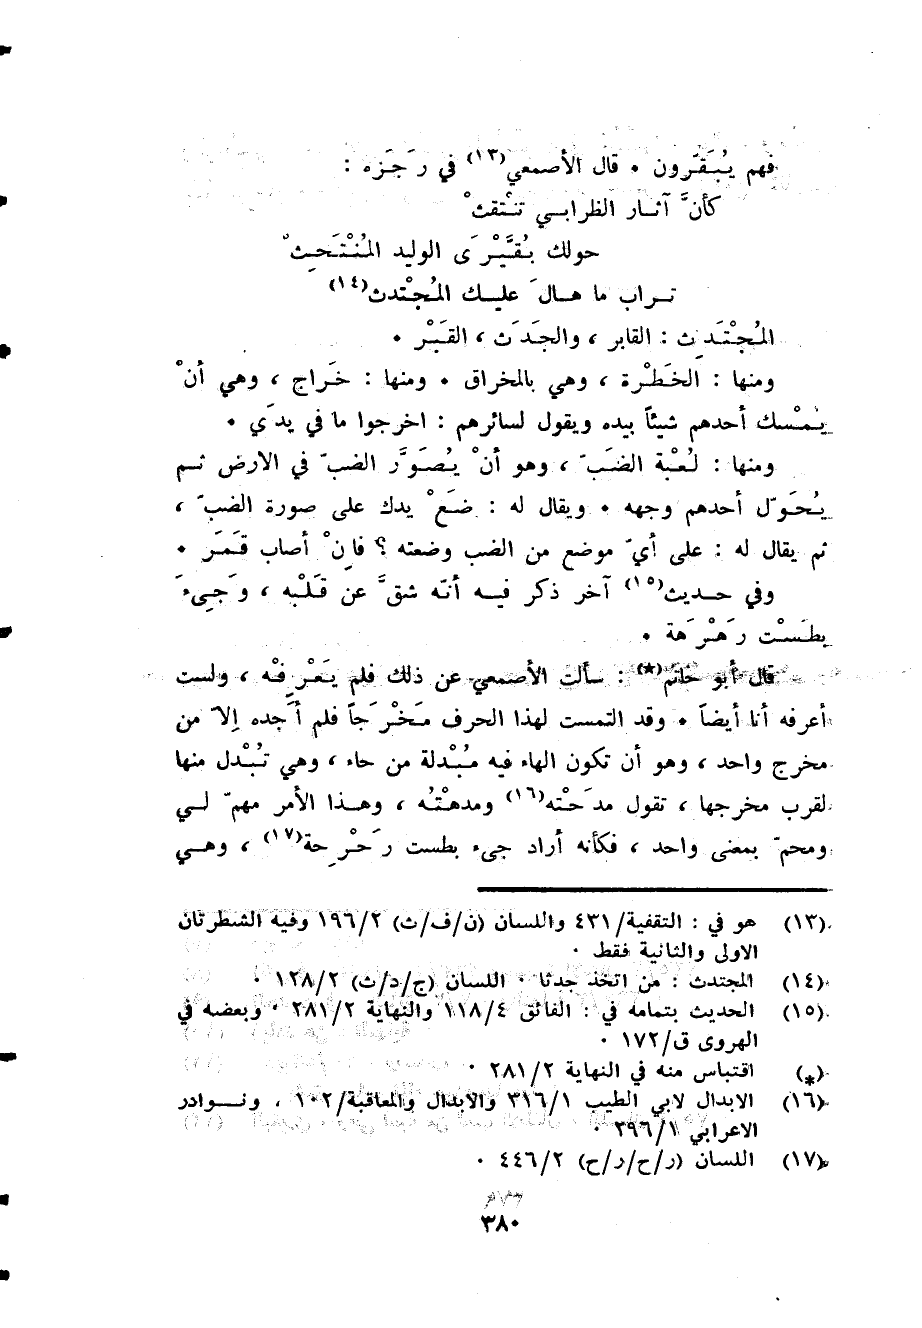 فهم يُبَقّرون ٠ قال الأصمعي(١٣) في رَجَزه :
كأنَّ آثار الظرابي تنْتقثْ
حولك بُقَّيْرَى الوليد المُنْتَحِثْ
تراب ما هالَ عليك المُجْتدث(١٤)
المُجْتَدِث : القابر ، والجَدَث ، القَبْر ٠
ومنها : الخَطْرة ، وهي بالمخراق ٠ ومنها : خَراج ، وهي أنْ
يمْسك أحدهم شيئاً بيده ويقول لسائرهم : اخرجوا ما في يدَي ٠
ومنها : لُعْبة الضَبّ ، وهو أنْ يُصَوَّر الضبّ في الارض ثم
يُحَوّل أحدهم وجهه ٠ ويقال له : ضَعْ يدك على صورة الضبّ ،
ثم يقال له : على أيّ موضع من الضب وضعته ؟ فاِنْ أصاب قَمَر ٠
وفي حديث(١٥) آخر ذكر فيه أنّه شقَّ عن قَلْبه ، وَجِيءَ
بطَسْت رَهْرَهة ٠
قال أبو حاتم(*) : سألت الأصمعي عن ذلك فلم يَعْرِفْه ، ولست
أعرفه أنا أيضاً ٠ وقد التمست لهذا الحرف مَخْرَجاً فلم أَجده إلاّ من
مخرج واحد ، وهو أن تكون الهاء فيه مُبْدلة من حاء ، وهي تُبْدل منها
لقرب مخرجها ، تقول مدَحْته(١٦) ومدهْتُه ، وهذا الأمر مهمّ لي
ومحمّ بمعنى واحد ، فكأنه أراد جيء بطست رَحْرحة(١٧) ، وهي
(١٣) هو في : التقفية/٤٣١ واللسان (ن/ف/ث) ١٩٦/٢ وفيه الشطرتان
الاولى والثانية فقط ٠
(١٤) المجتدث : من اتخذ جدثا ٠ اللسان (ج/د/ث) ١٢٨/٢ ٠
(١٥) الحديث بتمامه في : الفائق ١١٨/٤ والنهاية ٢٨١/٢ ٠ وبعضه في
الهروى ق/١٧٢ ٠
(*) اقتباس منه في النهاية ٢٨١/٢ ٠
(١٦) الابدال لابي الطيب ٣١٦/١ والابدال والمعاقبة/١٠٢ ، ونوادر
الاعرابي ٣٩٦/١ ٠
(١٧) اللسان (ر/ح/ر/ح) ٤٤٦/٢ ٠
٣٨٠